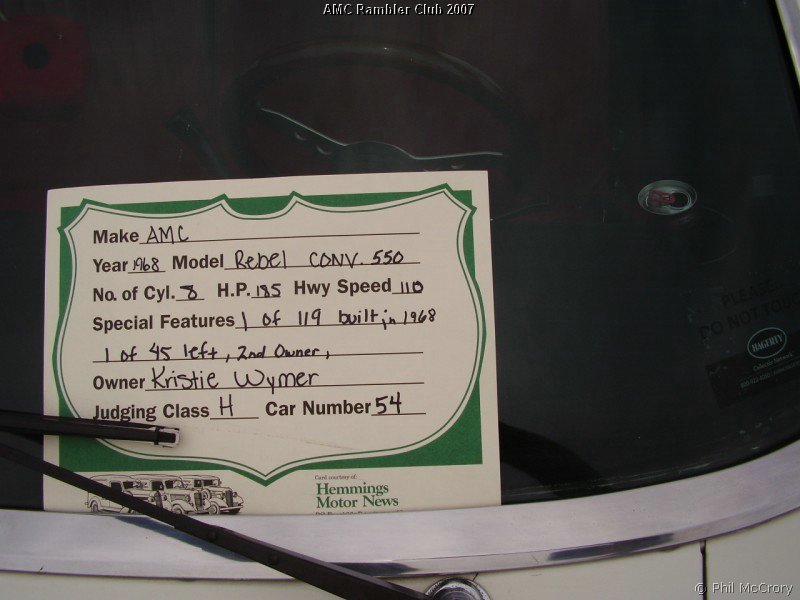 AMC Rambler Club 2007
Make AMC
Year 1968 Model Rebel CONV. 550
No. of Cyl. 8 H.P. 185 Hwy Speed 110
Special Features 1 of 119 built in 1968
1 of 45 left, 2nd Owner,
Owner Kristie Wymer
Judging Class H Car Number 54
Card courtesy of:
Hemmings
Motor News
PLEASE
DO NOT TOUCH
HAGERTY
© Phil McCrory